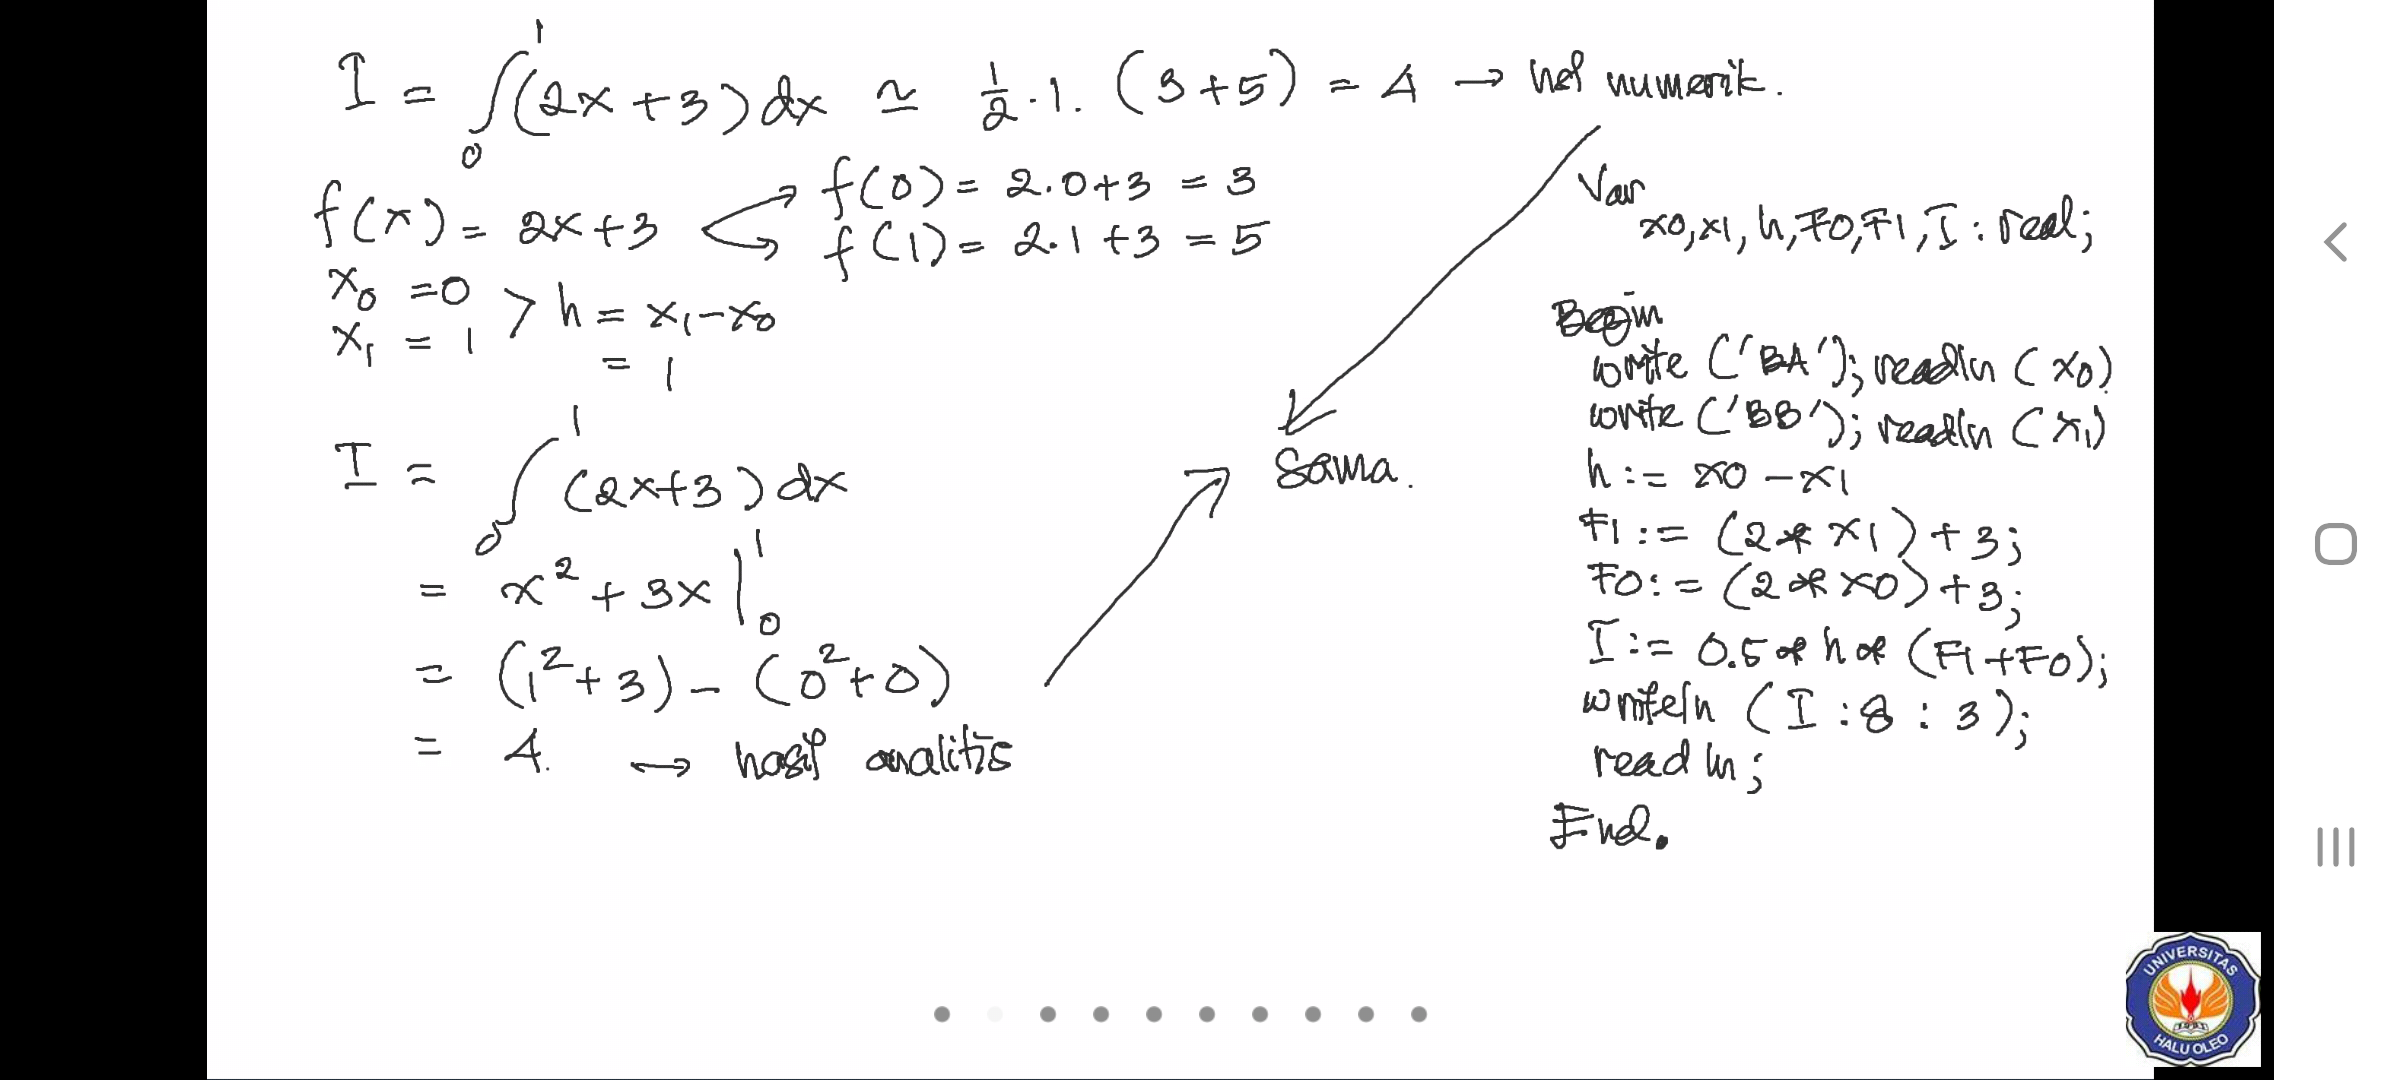 I = ∫₀¹ (2x+3) dx ≃ 1/2 . 1. (3+5) = 4 → numerik.
f(x) = 2x+3
f(0) = 2.0+3 = 3
f(1) = 2.1+3 = 5
x₀ = 0
x₁ = 1
> h = x₁-x₀
= 1
I = ∫₀¹ (2x+3) dx
= x² + 3x |₀¹
= (1²+3) - (0²+0)
= 4. → hasil analitis
Sama.
Var
x0,x1, h, F0, F1, I : real;
Begin
write ('BA'); readln (x0)
write ('BB'); readln (x1)
h := x0 - x1
F1 := (2 * x1) + 3;
F0 := (2 * x0) + 3;
I := 0.5 * h * (F1+F0);
writeln (I : 8 : 3);
readln;
End.
UNIVERSITAS
HALU OLEO